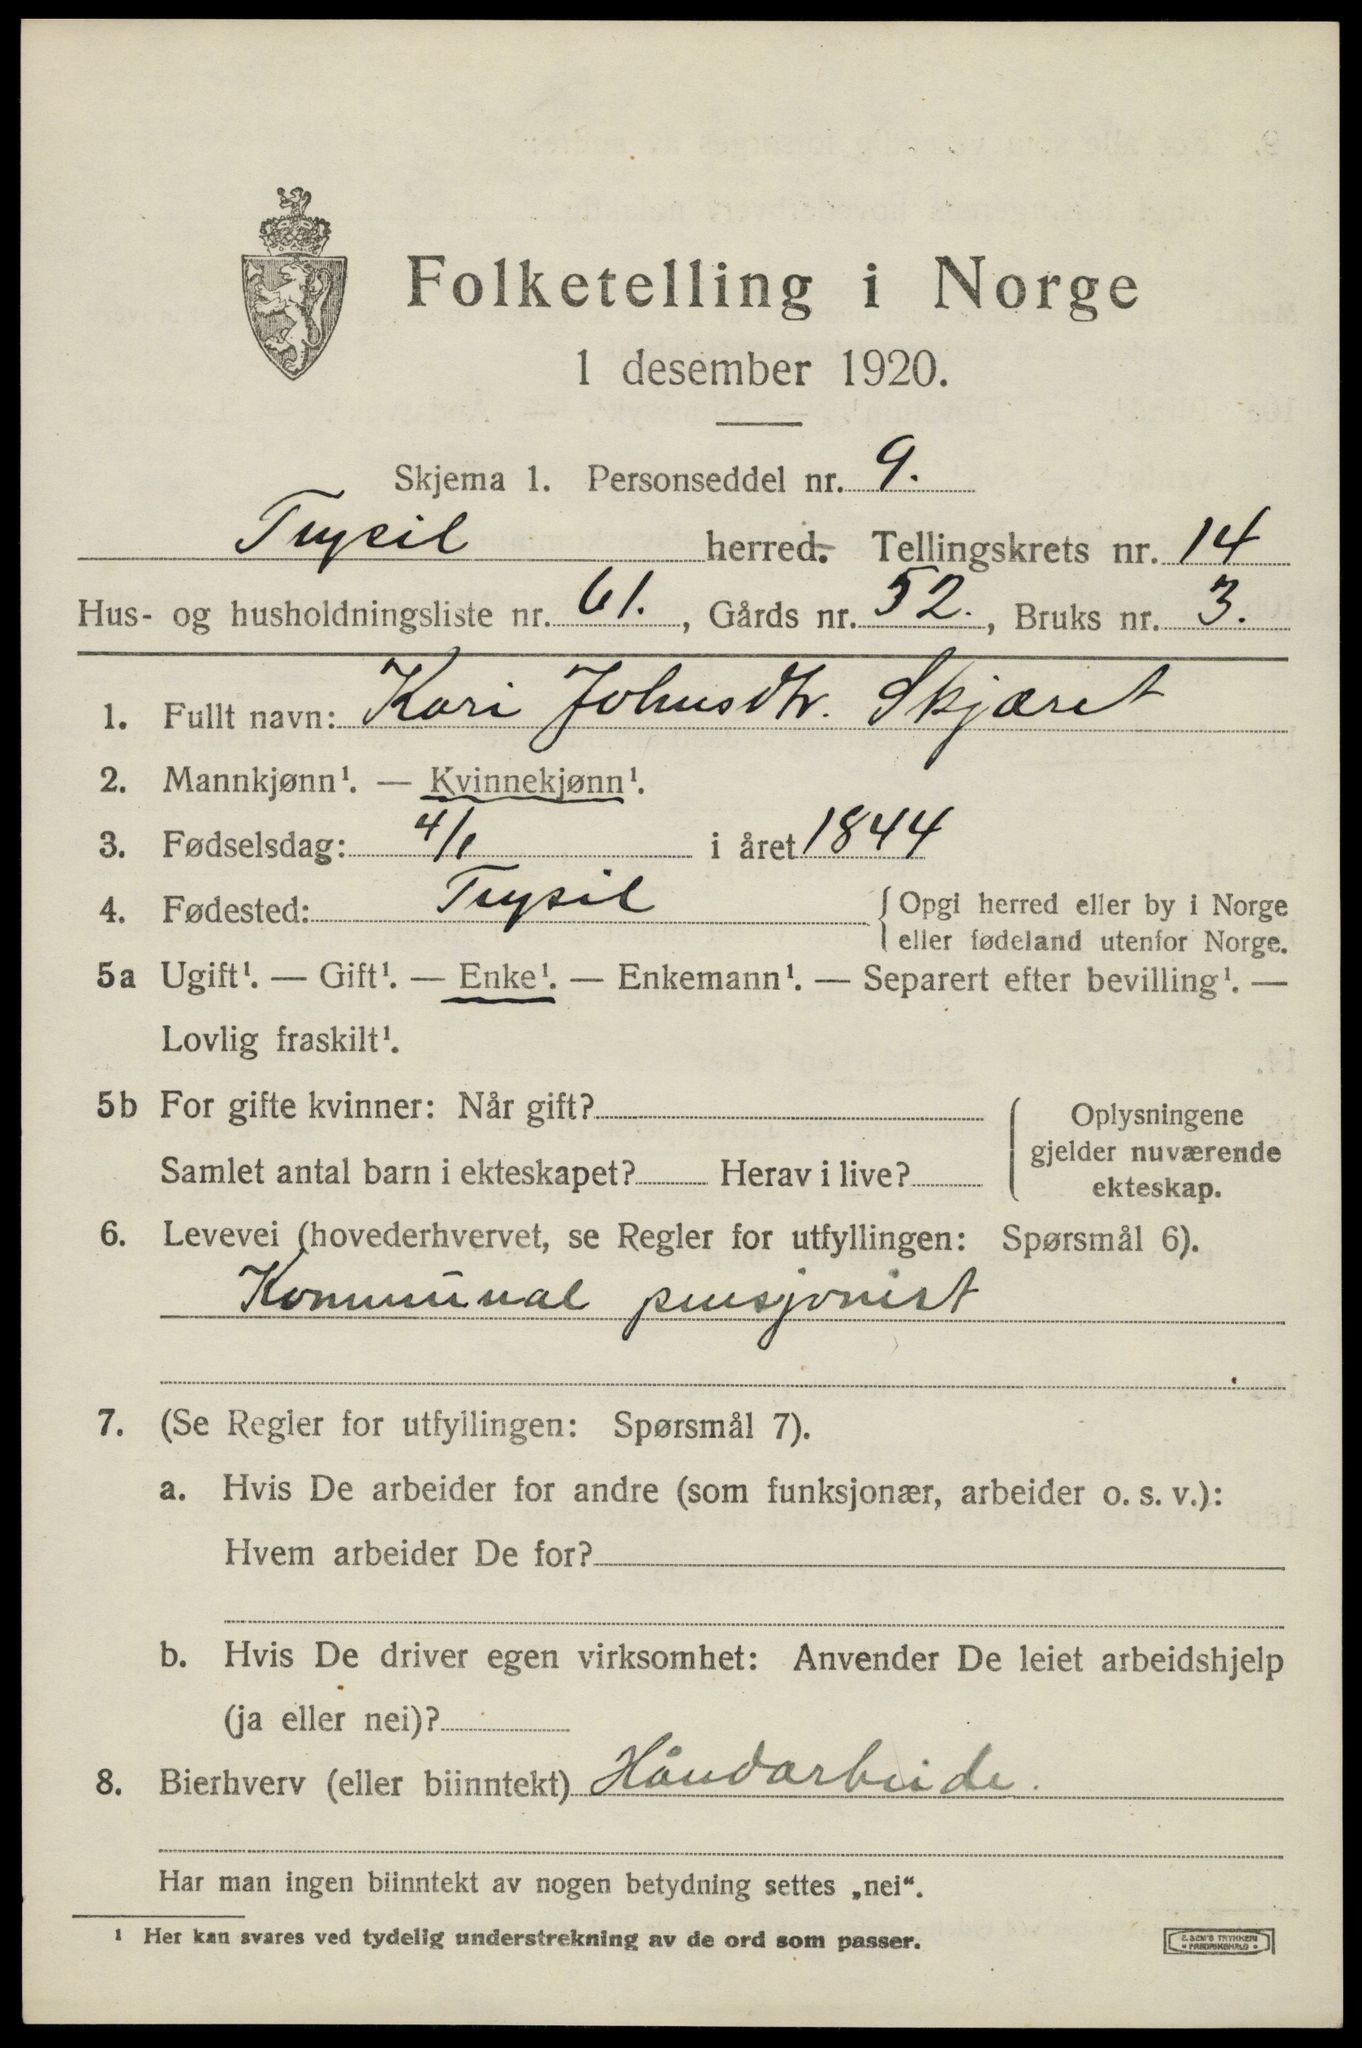 Folketelling i Norge
1 desember 1920.
Skjema 1. Personseddel nr. 9.
Trysil herred. Tellingskrets nr. 14
Hus- og husholdningsliste nr. 61., Gårds nr. 52., Bruks nr. 3.
1. Fullt navn: Kari Johnsdtr. Skjæret
2. Mannkjønn¹. — Kvinnekjønn¹.
3. Fødselsdag: 4/1 i året 1844
4. Fødested: Trysil { Opgi herred eller by i Norge
eller fødeland utenfor Norge.
5a Ugift¹. — Gift¹. — Enke¹. — Enkemann¹. — Separert efter bevilling¹. —
Lovlig fraskilt¹.
5b For gifte kvinner: Når gift? Oplysningene
gjelder nuværende
Samlet antal barn i ekteskapet? Herav i live? ekteskap.
6. Levevei (hovederhvervet, se Regler for utfyllingen: Spørsmål 6).
Kommunal pensjonist
7. (Se Regler for utfyllingen: Spørsmål 7).
a. Hvis De arbeider for andre (som funksjonær, arbeider o. s. v.):
Hvem arbeider De for?
b. Hvis De driver egen virksomhet: Anvender De leiet arbeidshjelp
(ja eller nei)?
8. Bierhverv (eller biinntekt) Håndarbeide.
Har man ingen biinntekt av nogen betydning settes „nei“.
¹ Her kan svares ved tydelig understrekning av de ord som passer.